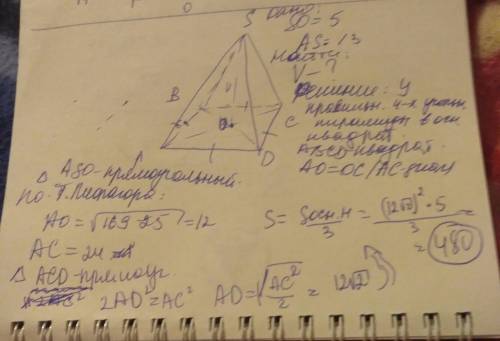 O
S
Дано:
SO = 5
AS = 13
Найти
V - ?
B
C
O
D
Решение: У
правильн. 4-х угольн.
пирамиды в осн.
квадрат.
ABCD-квадрат.
AO=OC (AC-диаг)
Δ ASO-прямоугольный.
По Т. Пифагора:
AO = √169-25 = 12
AC = 24
Δ ACD-прямоуг
2AD² = AC² AD = √AC²/2 = 12√2
S = Sосн.H/3 = (12√2)²·5/3 =
= 480